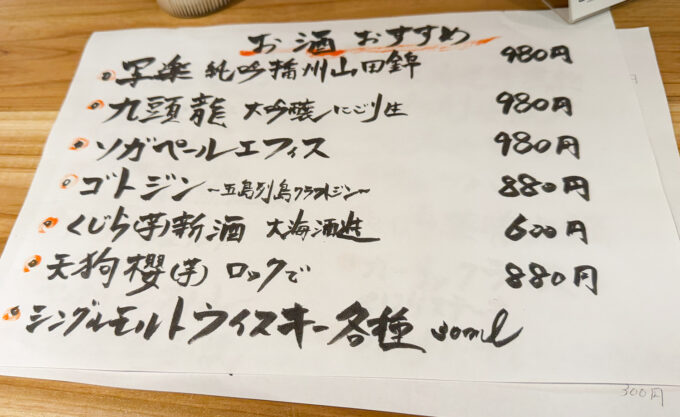 お酒 おすすめ
写楽 純吟播州山田錦 980円
九頭龍 大吟醸にごり生 980円
ソガペールエフィス 980円
ゴトジン ～五島列島クラフトジン～ 880円
くじら(芋)新酒 大海酒造 600円
天狗櫻(芋) ロックで 880円
シングルモルトウイスキー各種 30ml
300円